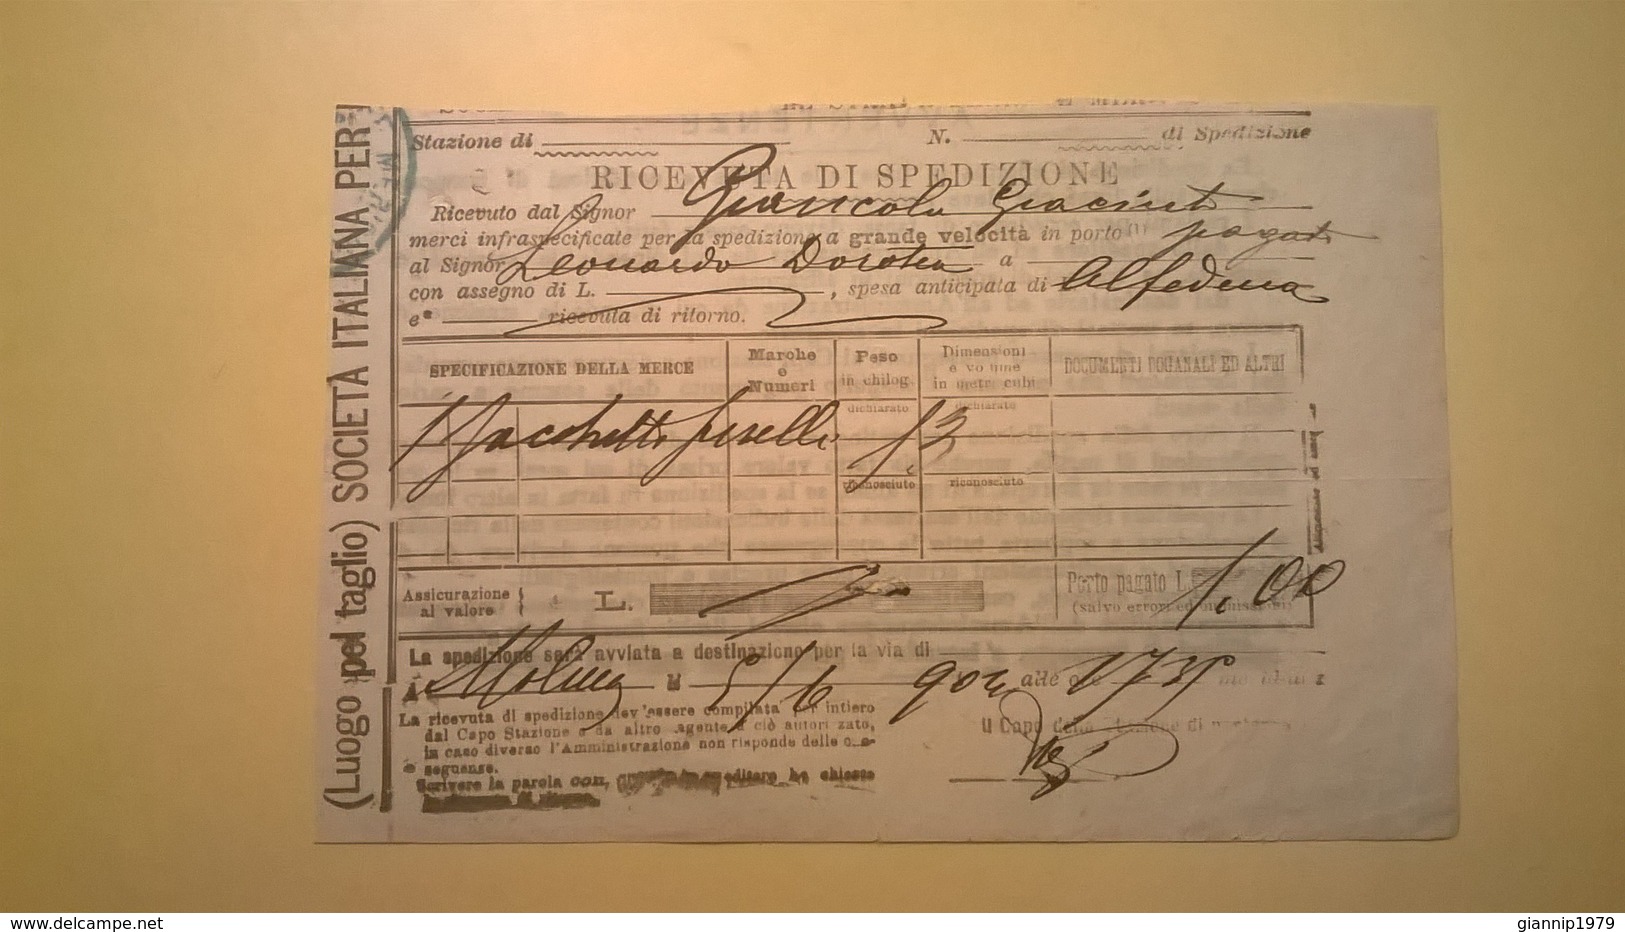 (Luogo pel taglio) SOCIETÀ ITALIANA PER
Stazione di N. di Spedizione
RICEVUTA DI SPEDIZIONE
Ricevuto dal Signor Giancola Giacinto
merci infraspecificate per la spedizione a grande velocità in porto (1) pagato
al Signor Leonardo Dorotea a
con assegno di L. , spesa anticipata di Alfedena
e ricevuta di ritorno.
SPECIFICAZIONE DELLA MERCE
Marche e Numeri
Peso in chilog.
Dimensioni e volume in metri cubi
DOCUMENTI DOGANALI ED ALTRI
dichiarato dichiarato
1 Sacchetto piselli 13
riconosciuto riconosciuto
Assicurazione al valore L.
Porto pagato L. 1.00
(salvo errori ed ommissioni)
La spedizione sarà avviata a destinazione per la via di
A li 5/6 902 alle ore
La ricevuta di spedizione dev'essere compilata per intiero
dal Capo Stazione o da altro agente a ciò autorizzato,
in caso diverso l'Amministrazione non risponde delle conseguenze.
Il Capo della Stazione di partenza
Scrivere la parola con,
delcampe.net
giannip1979